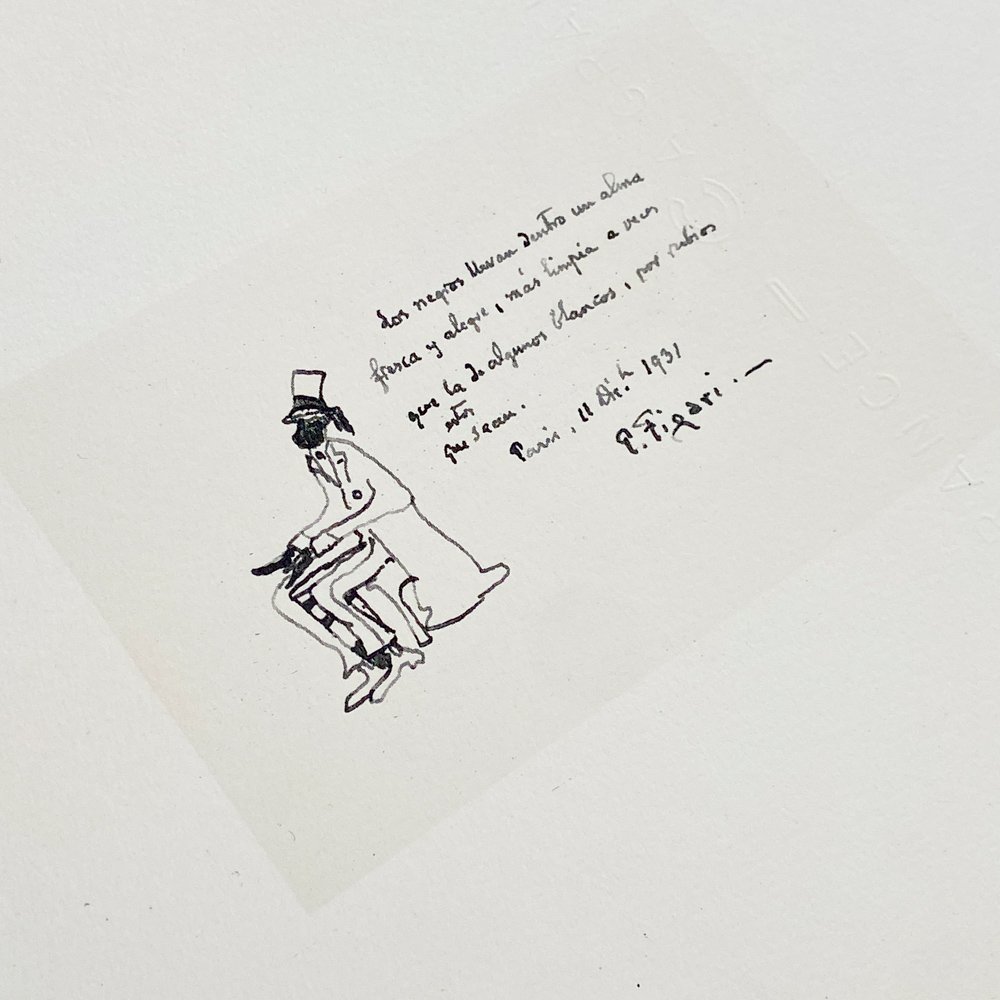 Los negros llevan dentro un alma
fresca y alegre, más limpia a veces
que la de algunos blancos, por rubios
estos
que sean.
Paris, 11 Dic. 1931
P. Figari. —